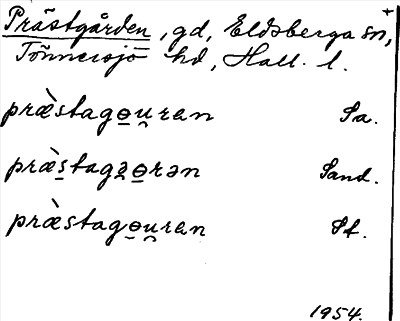 Prästgården, gd, Eldsberga sn,
Tönnersjö hd, Hall. l.
præ̀stago̱u̯rən Sa.
præ̀s̱tagɷ̱rən Sand.
præ̀stago̱u̯rən Sf.
1954.